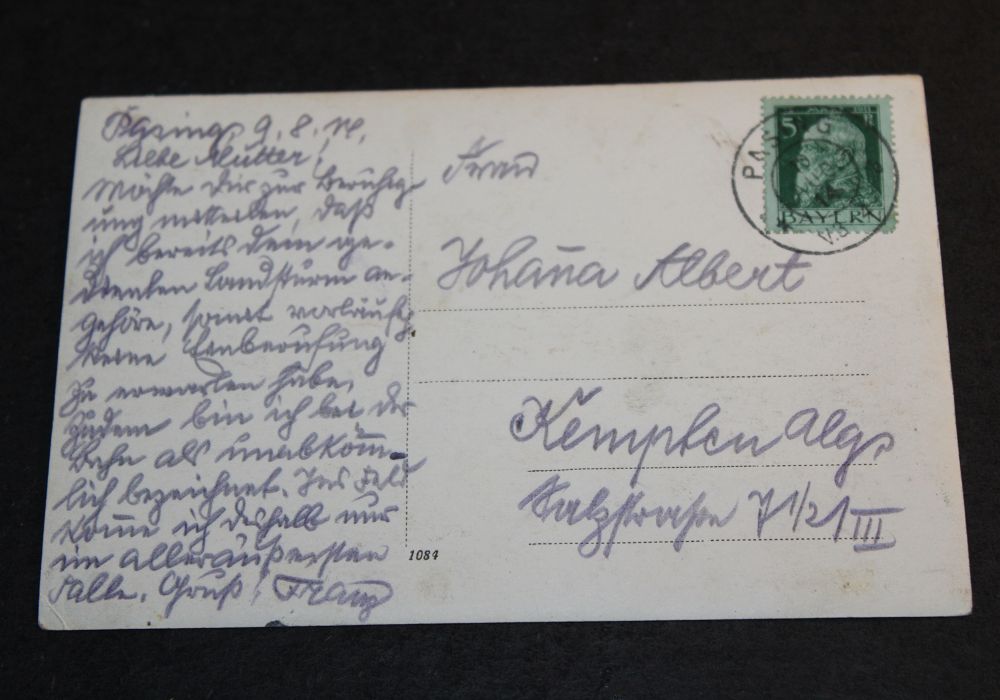 Pasing, 9.8.14.
Liebe Mutter!
Möchte dir zur Beruhig-
ung mitteilen, daß
ich bereits dem ge-
dienten Landsturm an-
gehöre, somit vorläufig
keine Einberufung
zu erwarten habe.
Zudem bin ich bei der
Bahn als unabkömm-
lich bezeichnet. Ins Feld
kom̅e ich deshalb nur
im alleräußersten
Falle. Gruß! Franz
1084
Frau
Johan̅a Albert
Kempten Alg.
Salzstraße 7 1/2 III
5
BAYERN
PASING